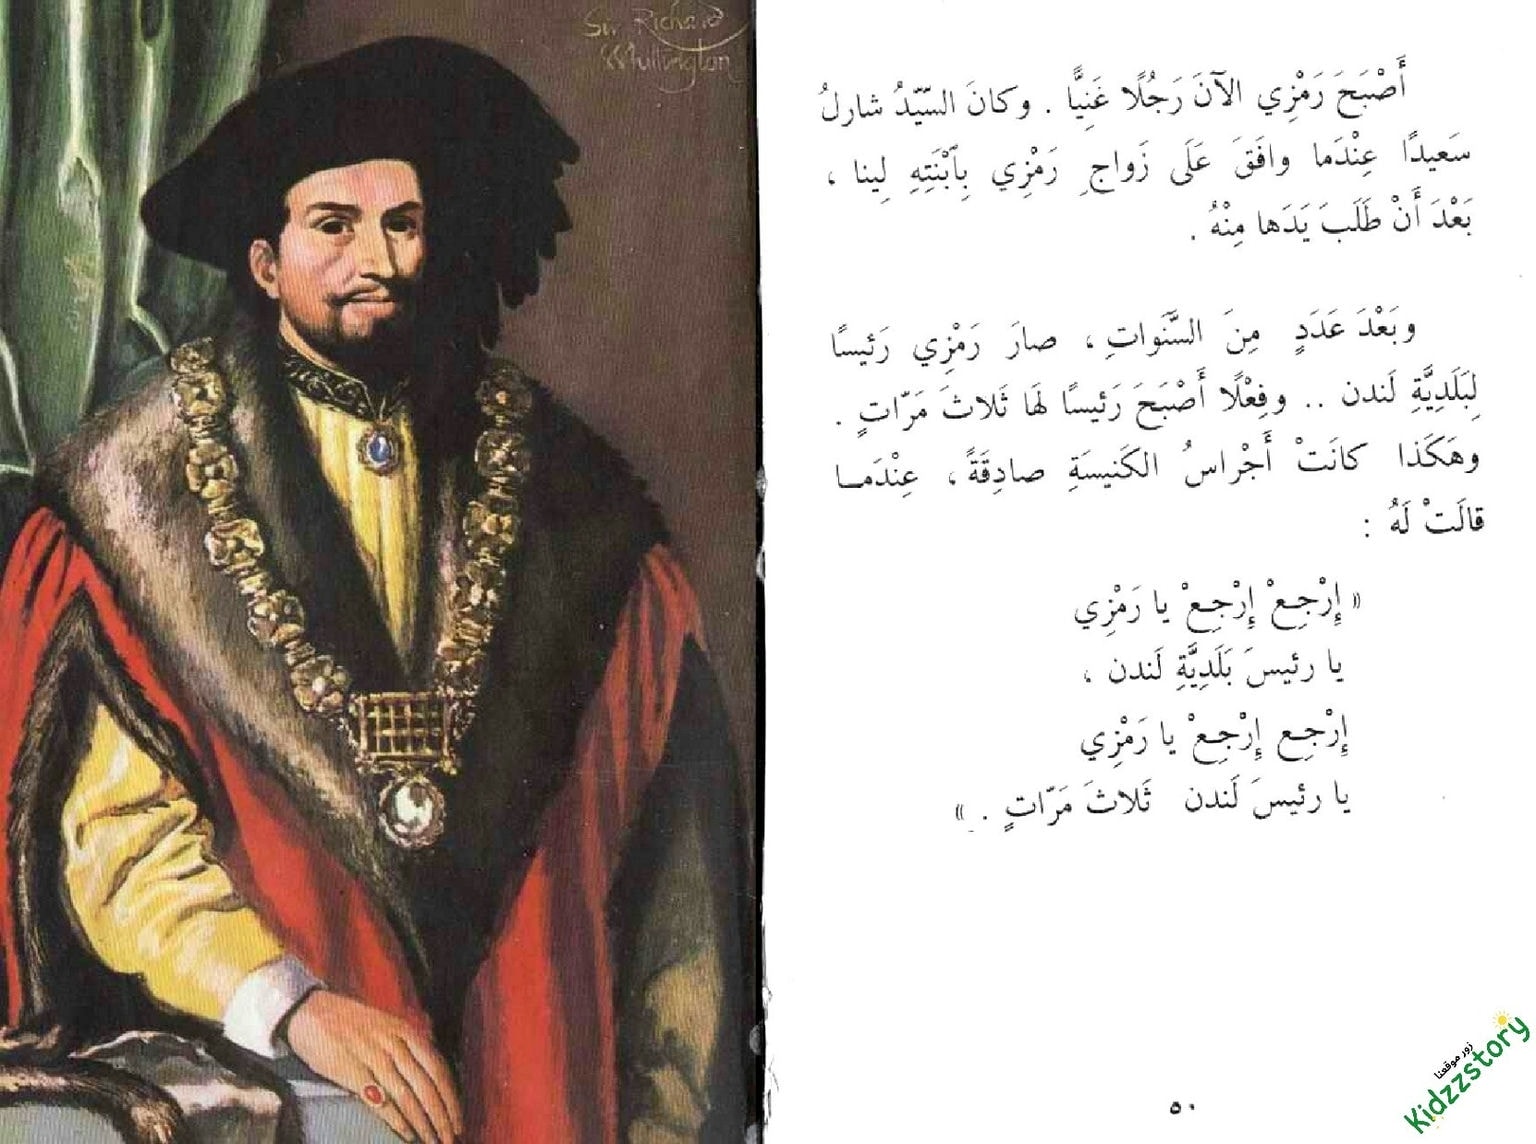 Sir Richard
Whittington
أَصْبَحَ رَمْزِي الآنَ رَجُلًا غَنِيًّا . وكانَ السّيّدُ شارلُ
سَعيدًا عِنْدَما وافَقَ عَلَى زَواجِ رَمْزِي بِٱبْنَتِهِ لِينا ،
بَعْدَ أَنْ طَلَبَ يَدَها مِنْهُ .
وبَعْدَ عَدَدٍ مِنَ السَّنَواتِ ، صارَ رَمْزِي رَئيسًا
لِبَلَدِيَّةِ لَندن .. وفِعْلًا أَصْبَحَ رَئيسًا لَها ثَلاثَ مَرّاتٍ .
وهَكَذا كانَتْ أَجْراسُ الكَنيسَةِ صادِقَةً ، عِنْدَمـا
قالَتْ لَهُ :
« إِرْجِعْ إِرْجِعْ يا رَمْزِي
يا رئيسَ بَلَدِيَّةِ لَندن ،
إِرْجِع إِرْجِعْ يا رَمْزِي
يا رئيسَ لَندن ثَلاثَ مَرّاتٍ . »
٥٠
زور موقعنا
Kidzzstory